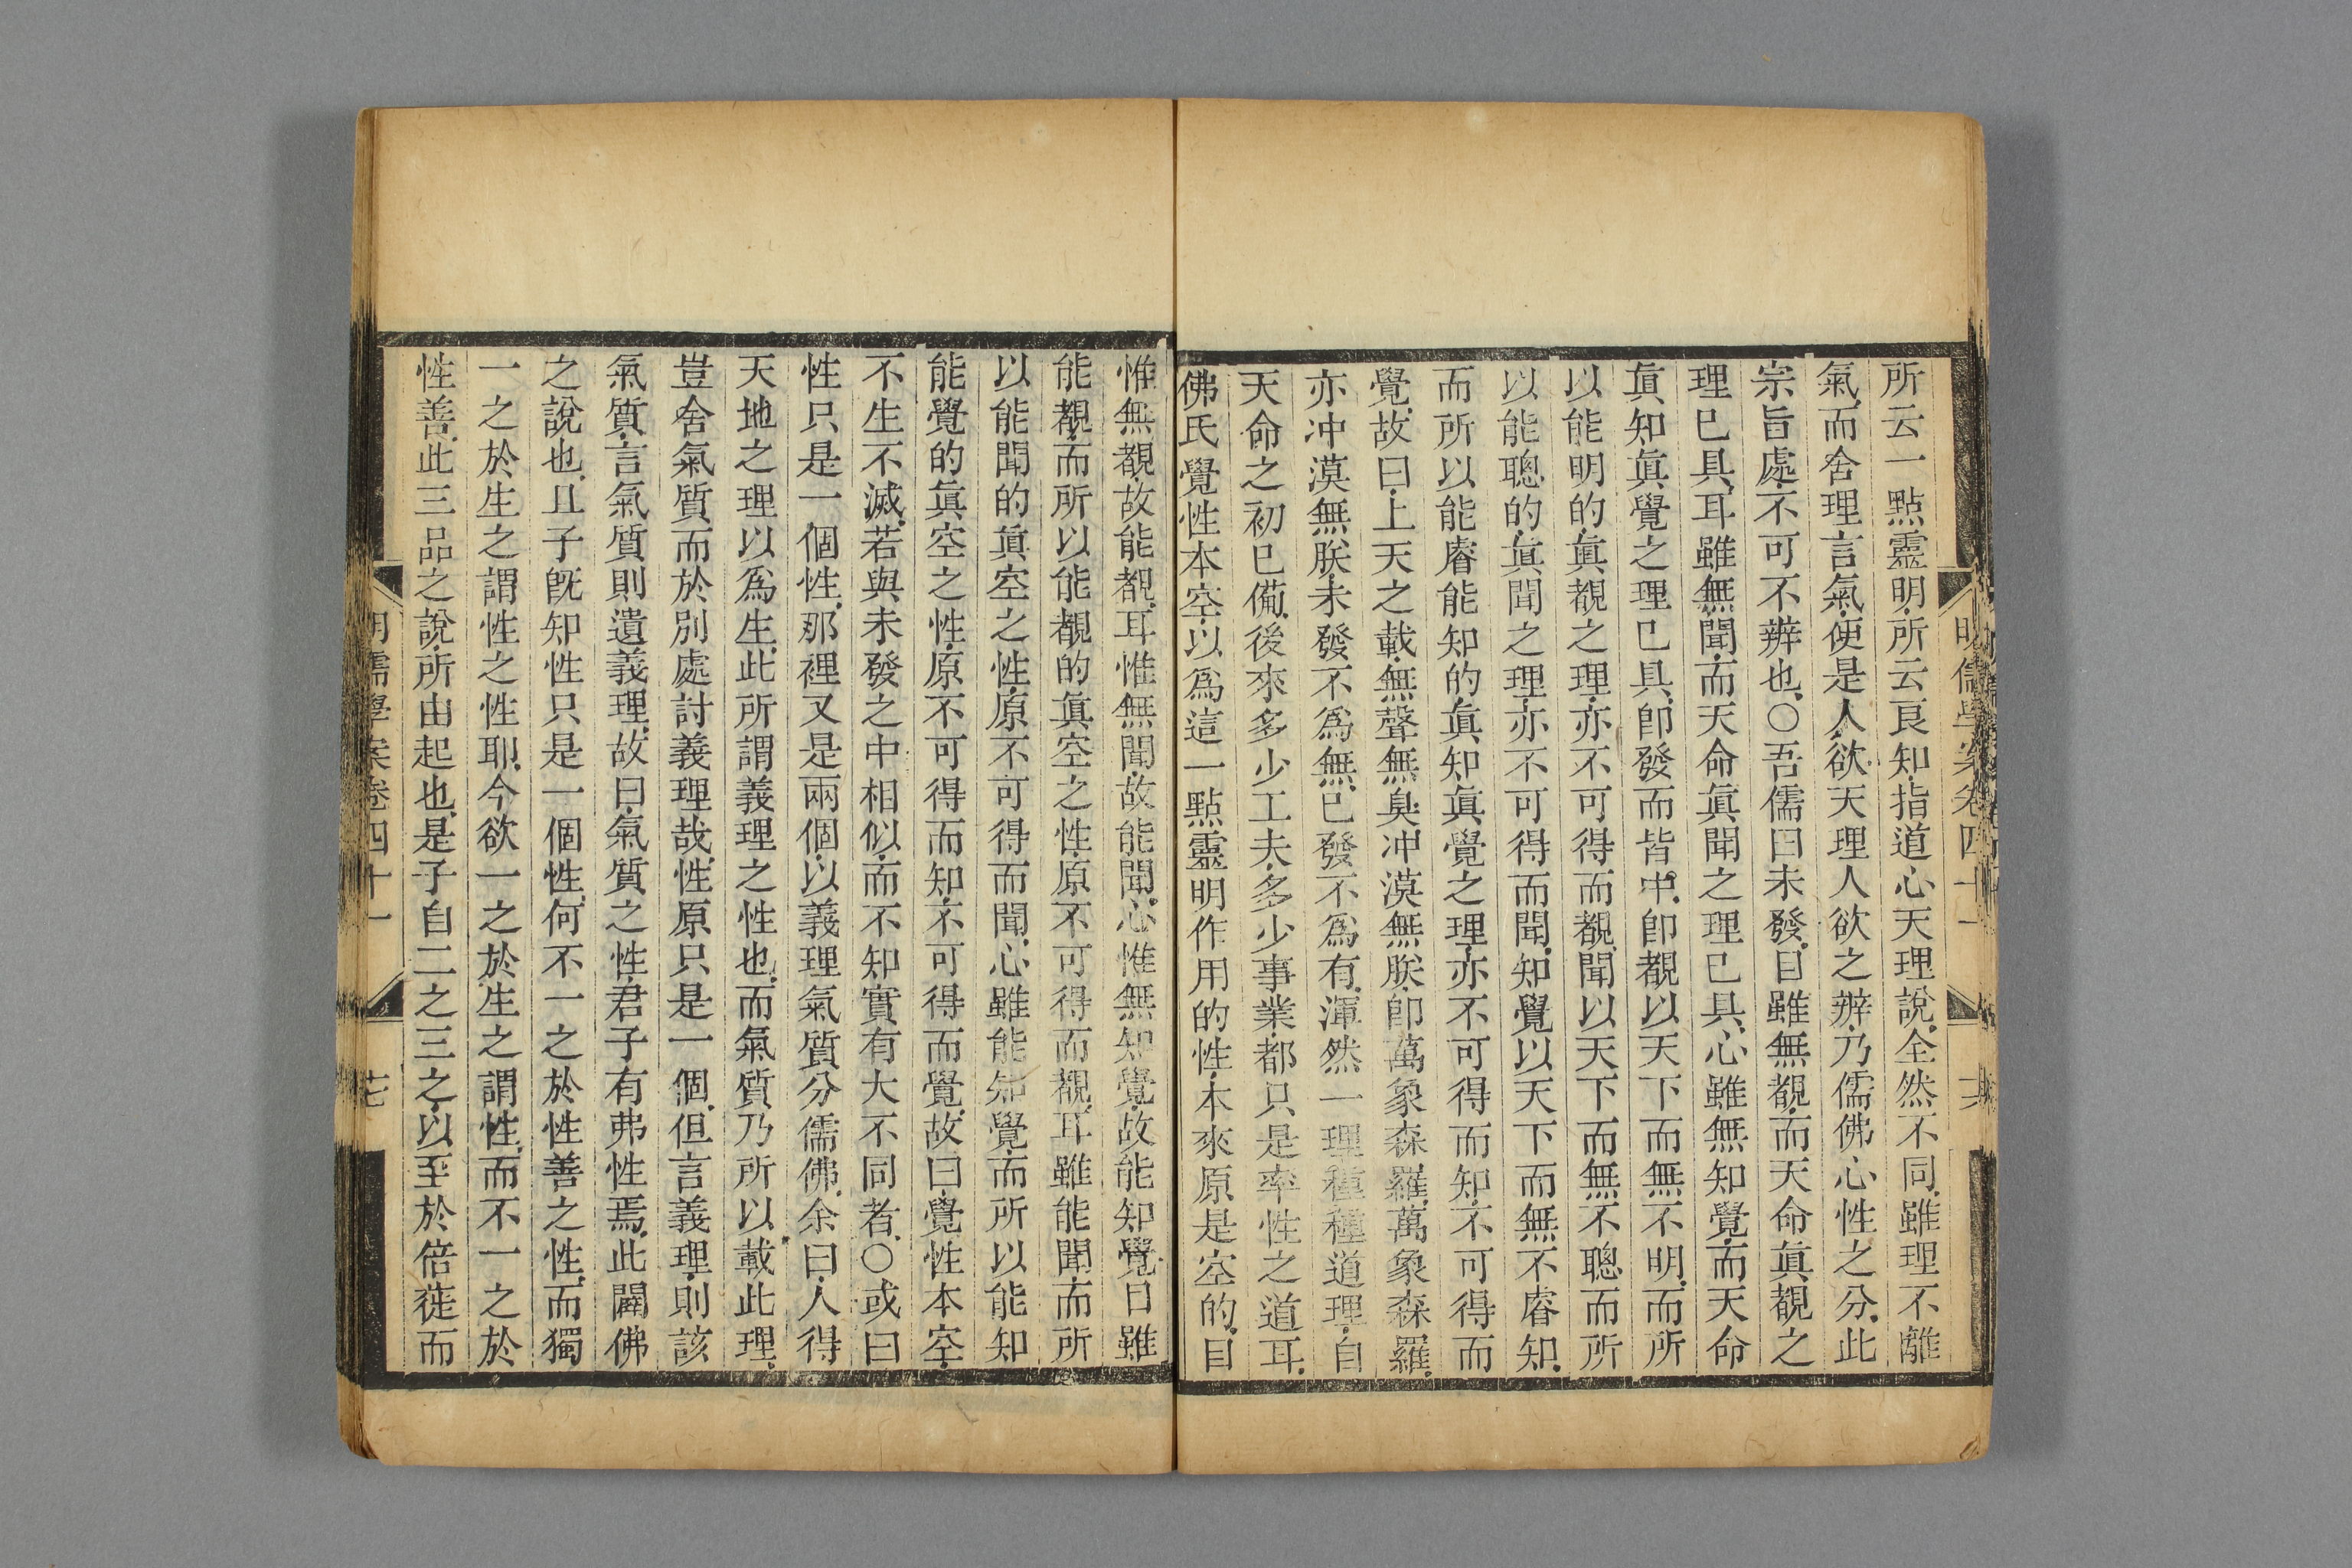 所云一點靈明所云良知指道心天理說全然不同雖理不離
氣而舍理言氣便是人欲天理人欲之辨乃儒佛心性之分此
宗旨處不可不辨也○吾儒曰未發目雖無覩而天命眞覩之
理已具耳雖無聞而天命眞聞之理已具心雖無知覺而天命
眞知眞覺之理已具卽發而皆中卽覩以天下而無不明而所
以能明的眞覩之理亦不可得而覩聞以天下而無不聰而所
以能聰的眞聞之理亦不可得而聞知覺以天下而無不睿知
而所以能睿能知的眞知眞覺之理亦不可得而知不可得而
覺故曰上天之載無聲無臭冲漠無朕卽萬象森羅萬象森羅
亦冲漠無朕未發不爲無已發不爲有渾然一理種種道理自
天命之初已備後來多少工夫多少事業都只是率性之道耳
佛氏覺性本空以爲這一點靈明作用的性本來原是空的目
惟無覩故能覩耳惟無聞故能聞心惟無知覺故能知覺目雖
能覩而所以能覩的眞空之性原不可得而覩耳雖能聞而所
以能聞的眞空之性原不可得而聞心雖能知覺而所以能知
能覺的眞空之性原不可得而知不可得而覺故曰覺性本空
不生不滅若與未發之中相似而不知實有大不同者○或曰
性只是一個性那裡又是兩個以義理氣質分儒佛余曰人得
天地之理以爲生此所謂義理之性也而氣質乃所以載此理
豈舍氣質而於別處討義理哉性原只是一個但言義理則該
氣質言氣質則遺義理故曰氣質之性君子有弗性焉此闢佛
之說也且子旣知性只是一個性何不一之於性善之性而獨
一之於生之謂性之性耶今欲一之於生之謂性而不一之於
性善此三品之說所由起也是子自二之三之以至於倍徙而
明儒學案卷四十一